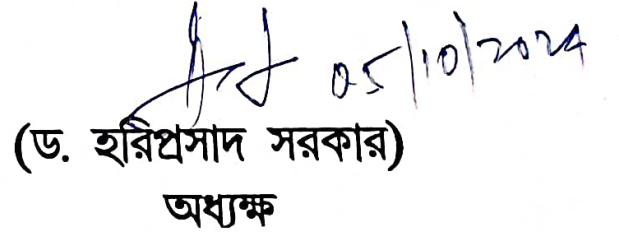 05/10/2024
(ড. হরিপ্রসাদ সরকার)
অধ্যক্ষ